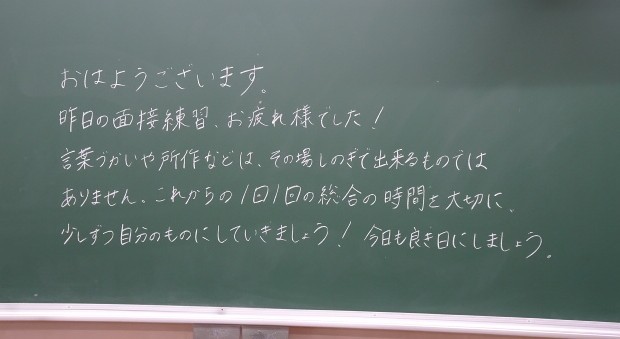 おはようございます。
昨日の面接練習、お疲れ様でした!
言葉づかいや所作などは、その場しのぎで出来るものでは
ありません。これからの1回1回の総合の時間を大切に、
少しずつ自分のものにしていきましょう! 今日も良き日にしましょう。